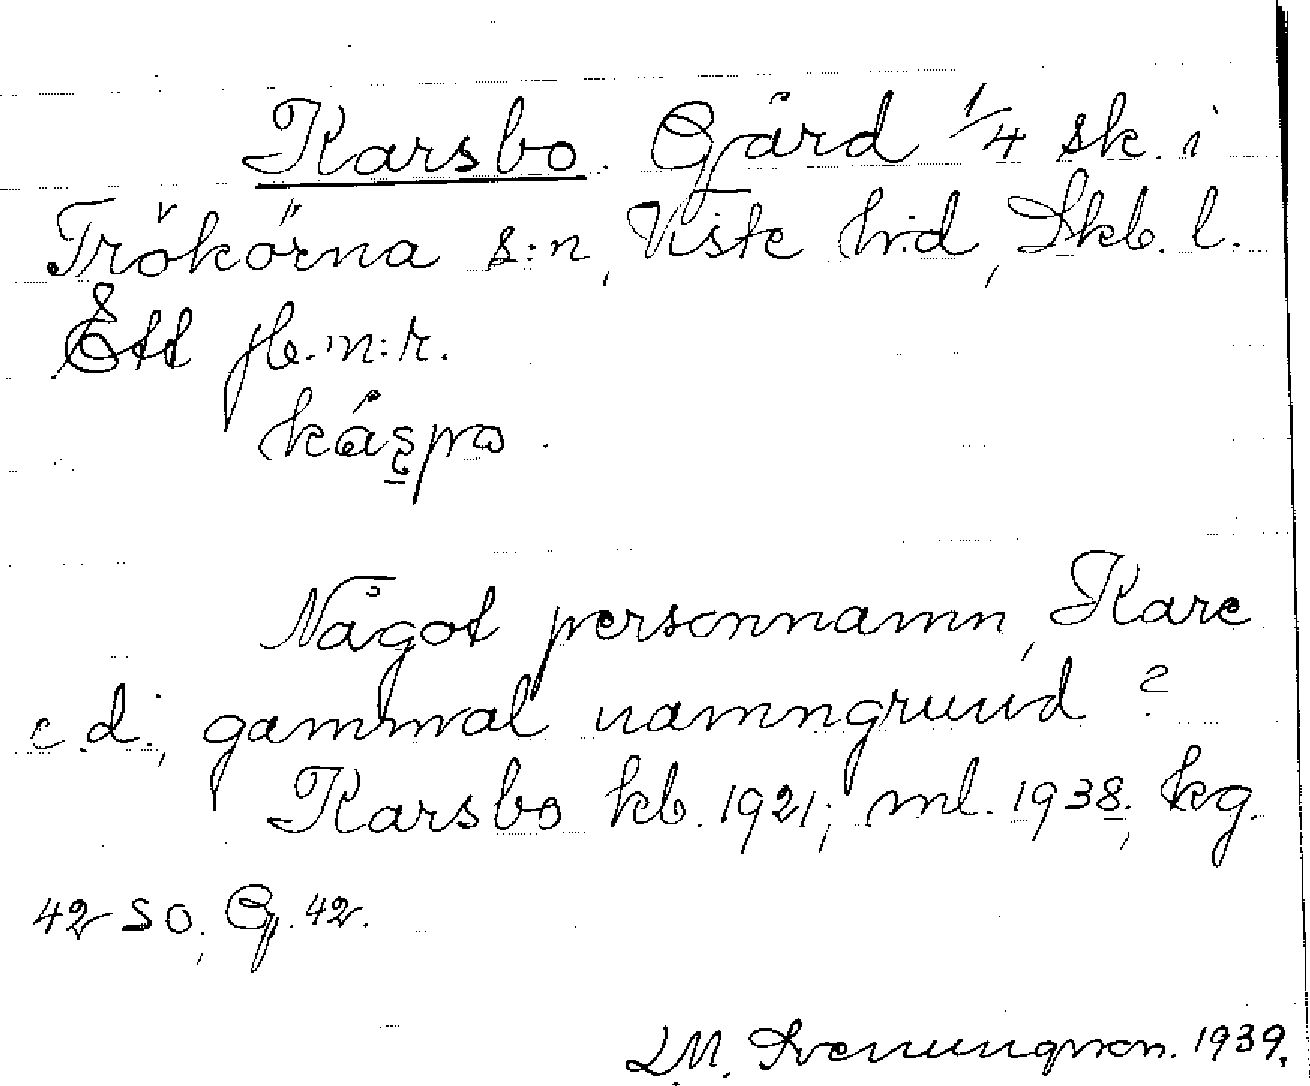 Karsbo. Gård 1/4 sk. i
Trökörna s:n, Viste h:d, Skb. l.
Ett jb.n:r.
Något personnamn, Kare
e.d., gammal namngrund?
Karsbo kb. 1921; ml. 1938; kg.
42 SO; G. 42.
L.M. Svenungsson. 1939.